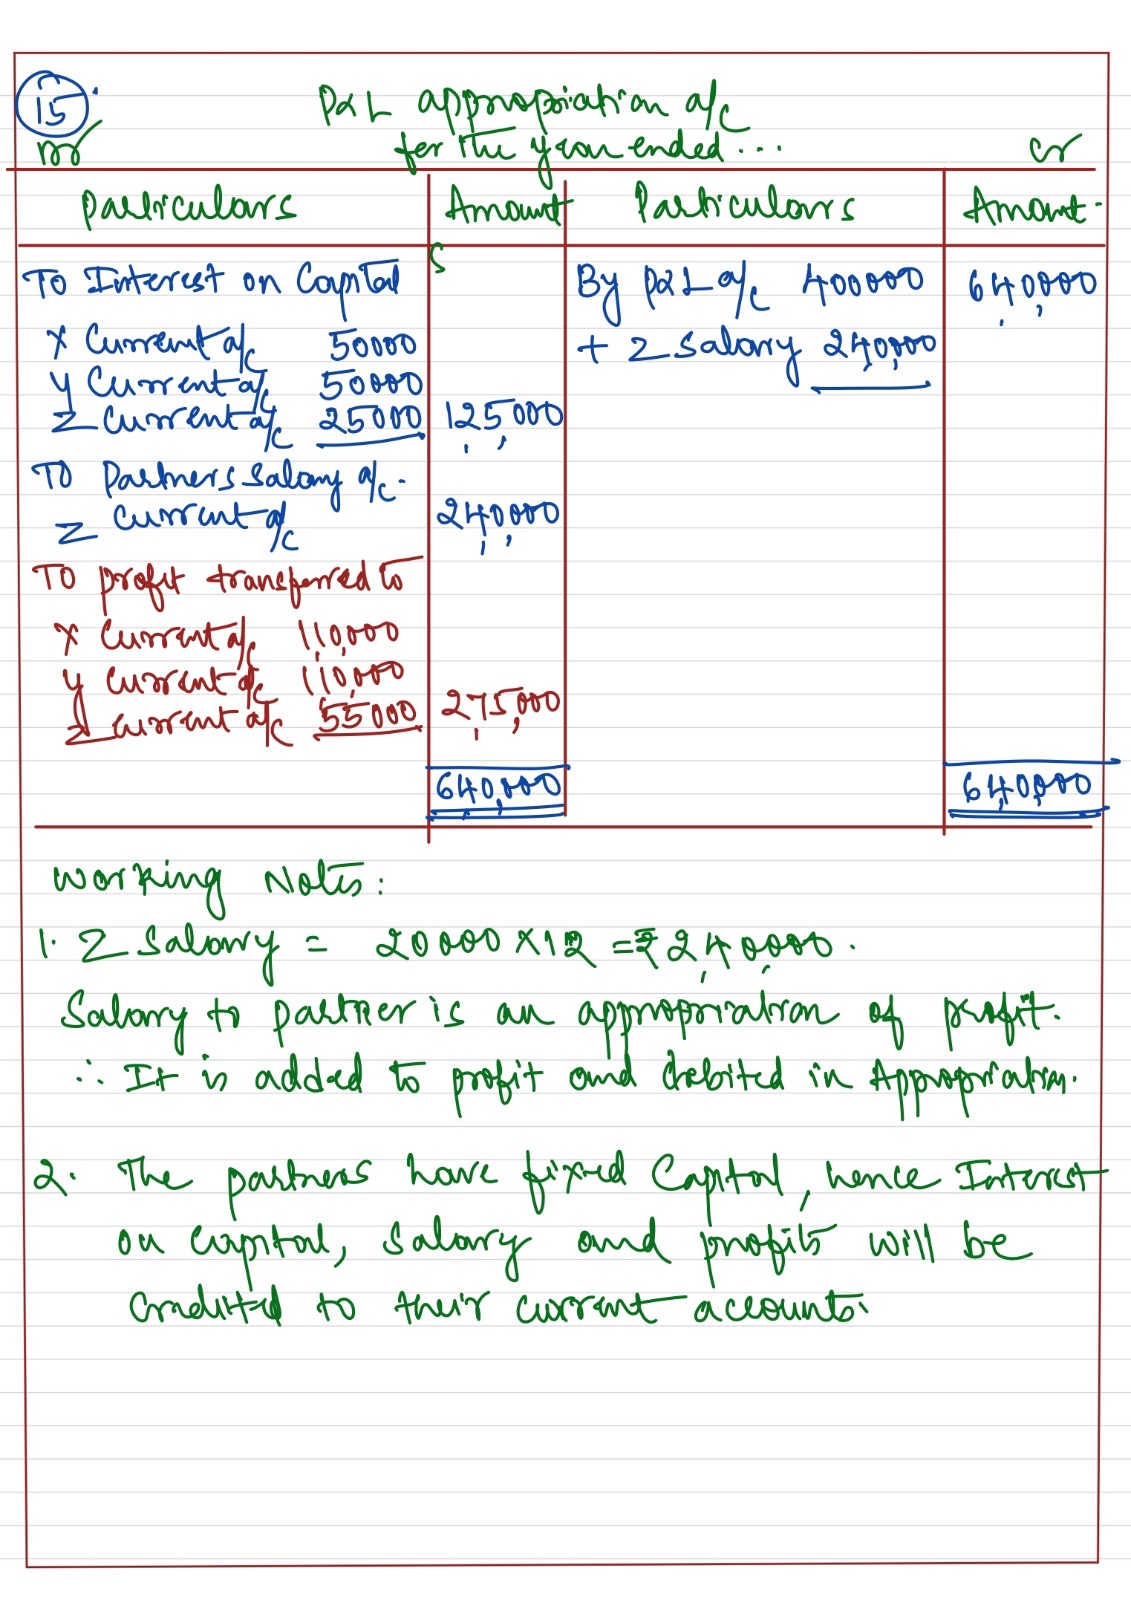 15.
P&L appropriation a/c
for the year ended...
Dr Cr
Particulars Amount Particulars Amount.
To Interest on Capital By P&L a/c 400000 640,000
X Current a/c 50000 + Z Salary 240,000
Y Current a/c 50000
Z Current a/c 25000 125,000
To Partners Salary a/c.
Z Current a/c 240,000
To profit transferred to
X Current a/c 110,000
Y Current a/c 110,000
Z Current a/c 55000 275,000
640,000 640,000
Working Notes:
1. Z Salary = 20000 X 12 = ₹240,000.
Salary to partner is an appropriation of profit.
∴ It is added to profit and debited in Appropriation.
2. The partners have fixed Capital, hence Interest
on capital, Salary and profits will be
credited to their current accounts.